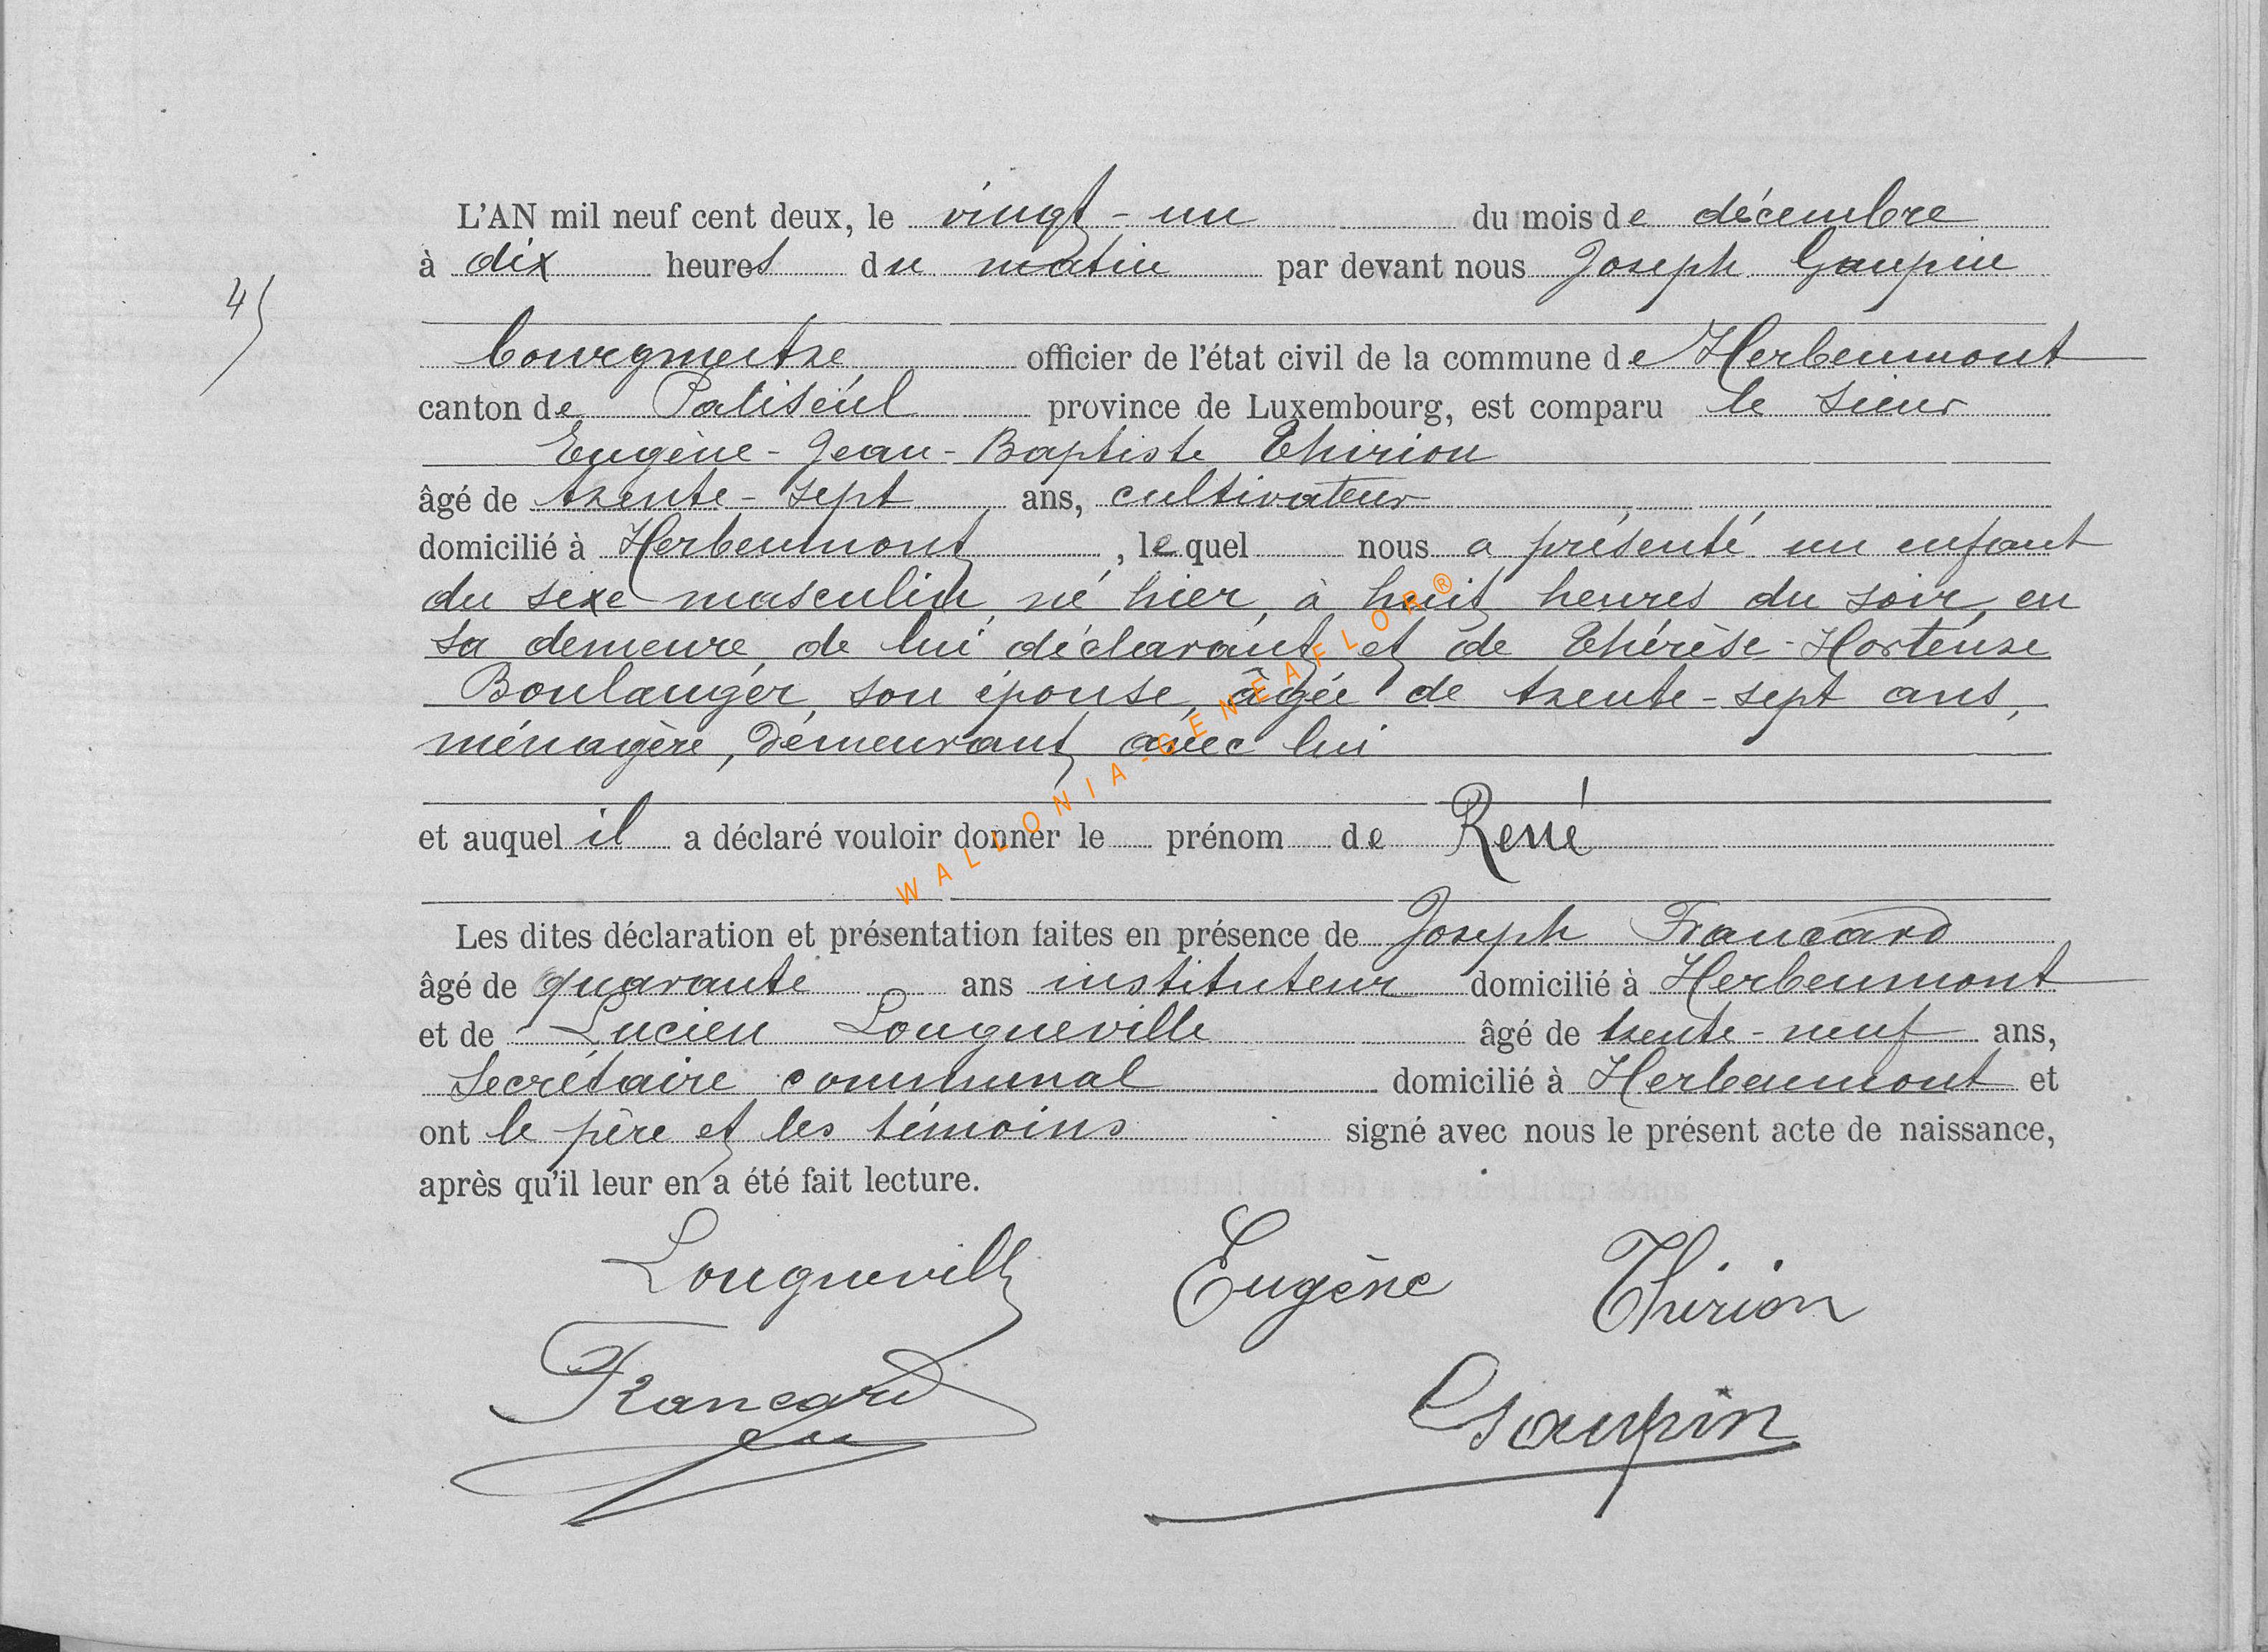 L'AN mil neuf cent deux, le vingt-un du mois de décembre
à dix heures du matin par devant nous Joseph Gaupin
bourgmestre officier de l'état civil de la commune de Herbeumont
canton de Paliseul province de Luxembourg, est comparu le sieur
Eugène-Jean-Baptiste Thirion
âgé de trente-sept ans, cultivateur
domicilié à Herbeumont, lequel nous a présenté un enfant
du sexe masculin, né hier, à huit heures du soir, en
sa demeure, de lui déclarant et de Thérèse-Hortense
Boulanger, son épouse, âgée de trente-sept ans,
ménagère, demeurant avec lui
et auquel il a déclaré vouloir donner le prénom de René
Les dites déclaration et présentation faites en présence de Joseph Francard
âgé de quarante ans instituteur domicilié à Herbeumont
et de Lucien Longueville âgé de trente-neuf ans,
Secrétaire communal domicilié à Herbeumont et
ont le père et les témoins signé avec nous le présent acte de naissance,
après qu'il leur en a été fait lecture.
Longueville Eugène Thirion
Francard
Gaupin
WALLONIA-GENEAFLOR®